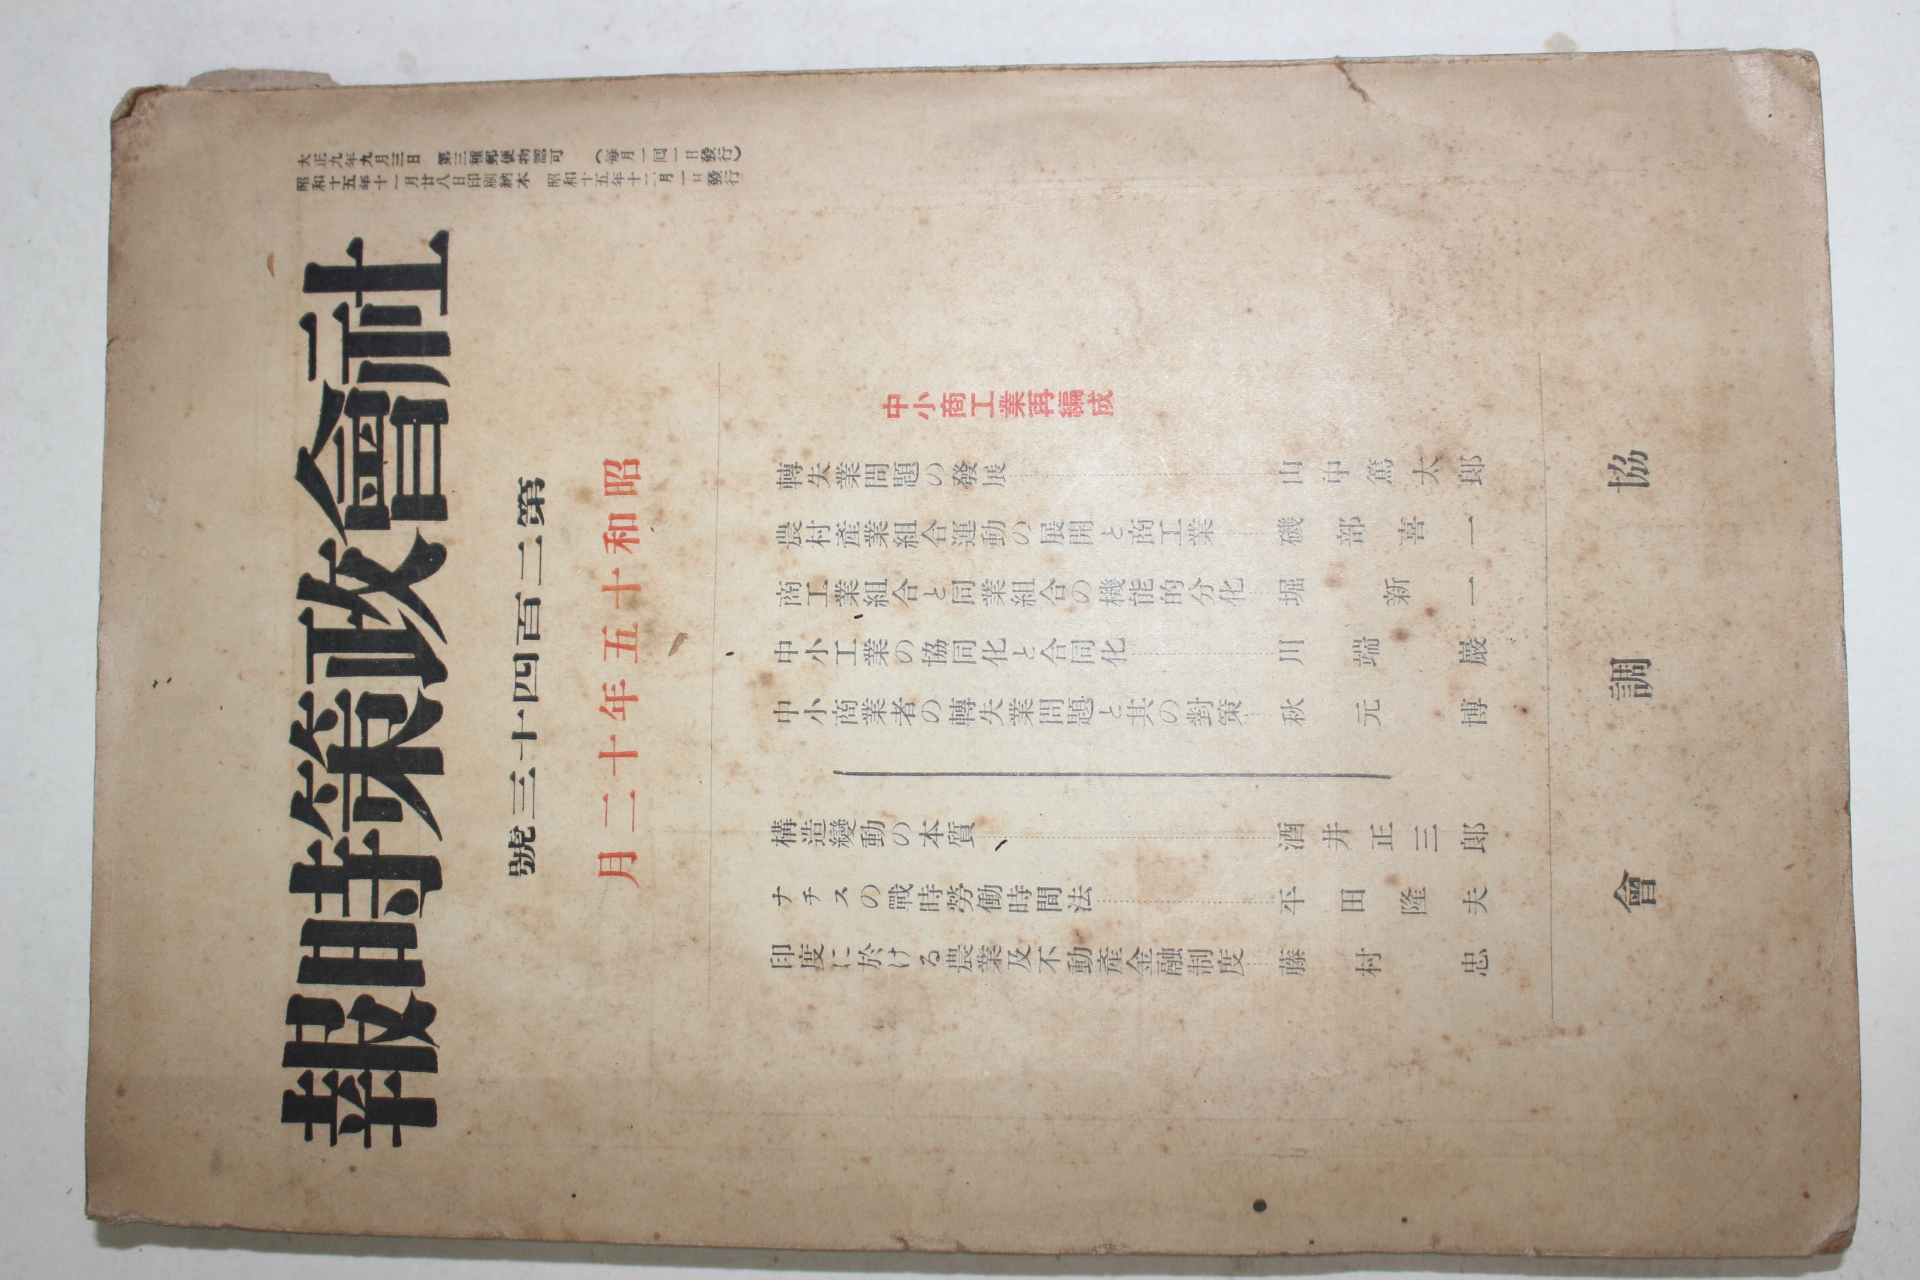 大正九年九月三日 第三種郵便物認可 (毎月一回一日發行)
昭和十五年十一月廿八日印刷納本 昭和十五年十二月一日發行
社會政策時報
第二百四十三號
昭和十五年十二月
中小商工業再編成
轉失業問題の發展 山中篤太郎
農村產業組合運動の展開と商工業 磯部喜一
商工業組合と同業組合の機能的分化 堀新一
中小工業の協同化と合同化 川端巖
中小商業者の轉失業問題と其の對策 秋元博
構造變動の本質 酒井正三郎
ナチスの戰時勞働時間法 平田隆夫
印度に於ける農業及不動產金融制度 藤村忠
協調會